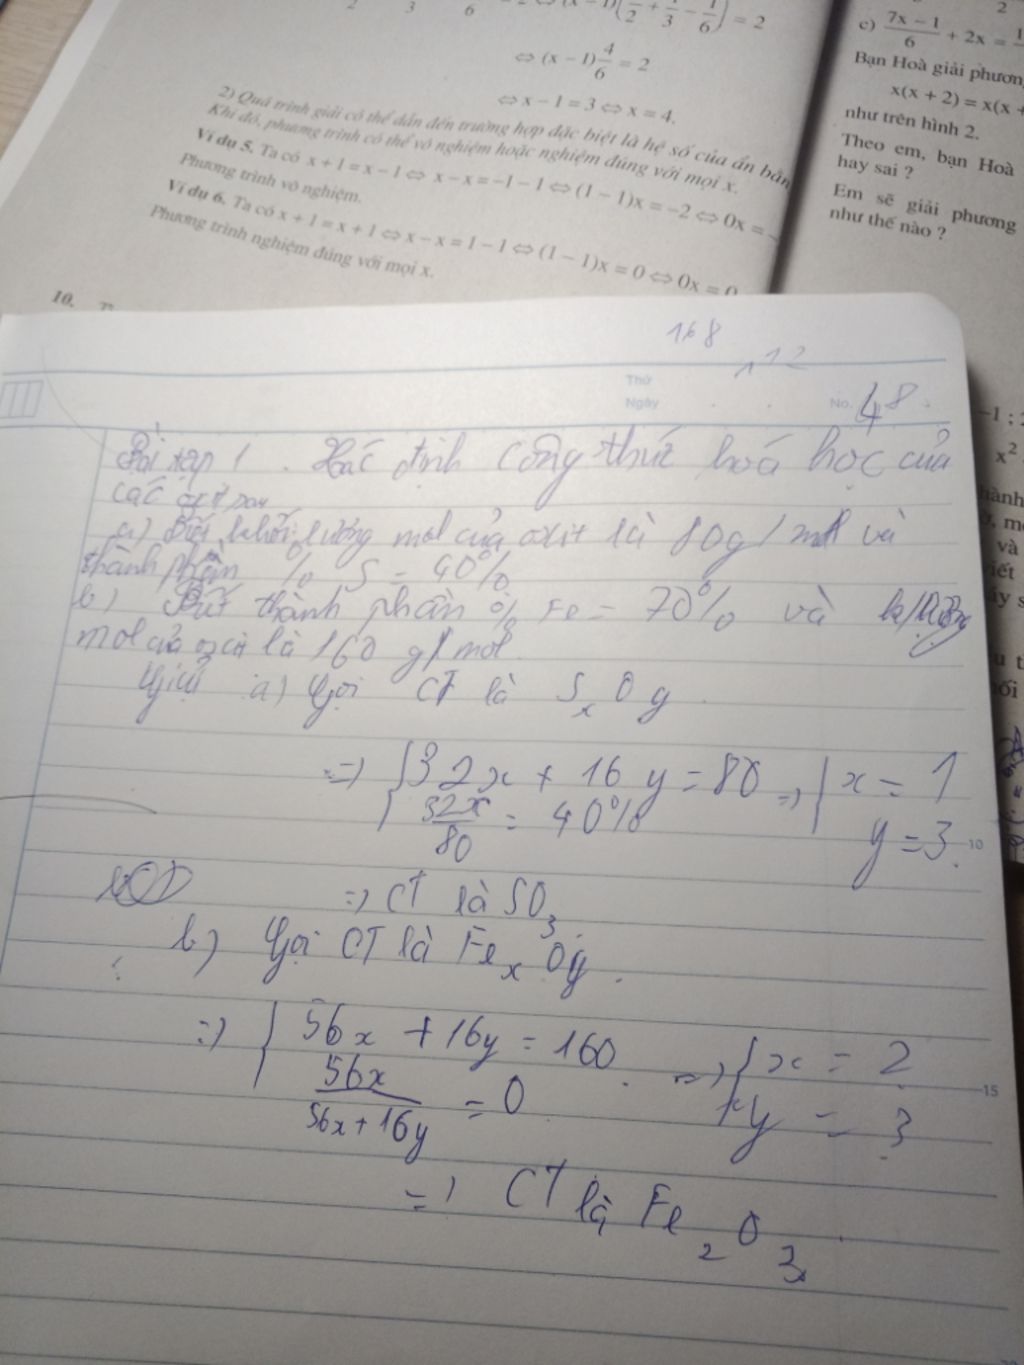 ⇔ (x − 1)(1/2 + 1/3 − 1/6) = 2
⇔ (x − 1)4/6 = 2
⇔ x − 1 = 3 ⇔ x = 4.
2) Quá trình giải có thể dẫn đến trường hợp đặc biệt là hệ số của ẩn bằn
Khi đó, phương trình có thể vô nghiệm hoặc nghiệm đúng với mọi x.
Ví dụ 5. Ta có x + 1 = x − 1 ⇔ x − x = −1 − 1 ⇔ (1 − 1)x = −2 ⇔ 0x = −
Phương trình vô nghiệm.
Ví dụ 6. Ta có x + 1 = x + 1 ⇔ x − x = 1 − 1 ⇔ (1 − 1)x = 0 ⇔ 0x = 0
Phương trình nghiệm đúng với mọi x.
10.
c) (7x − 1)/6 + 2x =
Bạn Hoà giải phươn
x(x + 2) = x(x +
như trên hình 2.
Theo em, bạn Hoà
hay sai ?
Em sẽ giải phương
như thế nào ?
168
12
Thứ
Ngày
No. 48
Bài tập 1. Xác định công thức hoá học của
các oxit sau
a) Biết khối lượng mol của oxit là 80g/mol và
thành phần % S = 40%
b) Biết thành phần % Fe = 70% và k/lượng
mol của oxit là 160 g/mol.
Giải a) Gọi CT là SxOy.
=> { 32x + 16y = 80 => { x = 1
{ 32x/80 = 40% y = 3.
10
=> CT là SO3
b) Gọi CT là FexOy.
=> { 56x + 16y = 160 => { x = 2
56x/(56x + 16y) = 0 y = 3
15
=> CT là Fe2O3